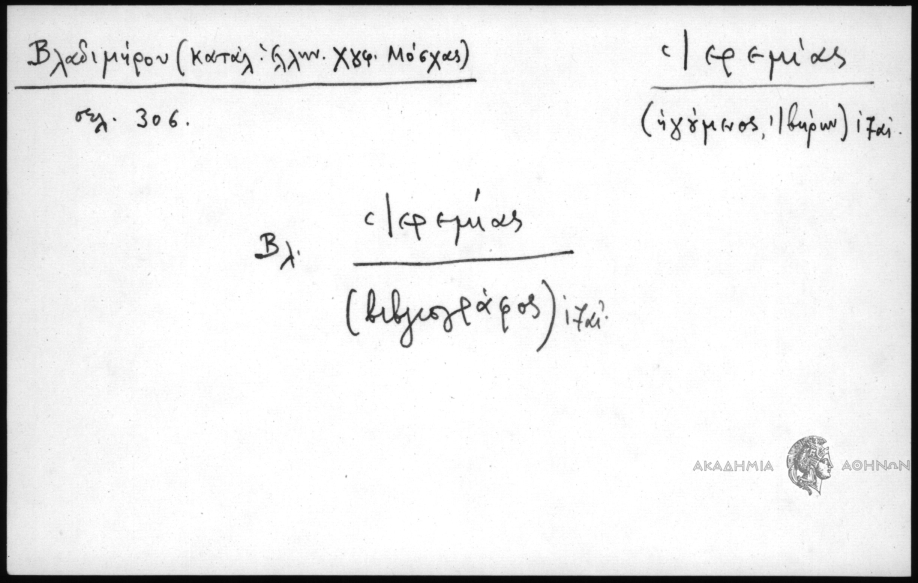 Βλαδιμήρου (Κατάλ. Ἑλλην. Χγφ. Μόσχας)
σελ. 306.
Ἱερεμίας
(ἡγούμενος, Ἰβήρων) ιζ αἰ.
Βλ.
Ἱερεμίας
(βιβλιογράφος) ιζ αἰ.
ΑΚΑΔΗΜΙΑ ΑΘΗΝΩΝ